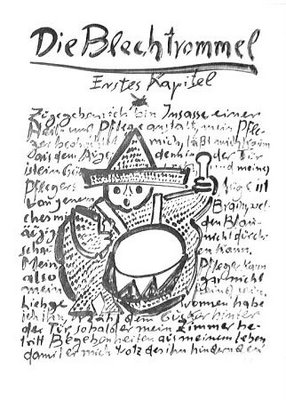 Die Blechtrommel
Erstes Kapitel
Zugegeben ich bin Insasse einer
Heil- und Pflegeanstalt, mein Pfle-
ger beobachtet mich, läßt mich kaum
aus dem Auge denn in der Tür
ist ein Gu und meines
Pflegers Auge ist
von jenem Braun, wel-
ches mi den Blau
nicht durch
schau en kann.
Mein Pfleger kann
also gar nicht
mein
liebge wonnen habe
ich ihn, erzähl dem Gucker hinter
der Tür, sobald er mein Zimmer be-
tritt Begebenheiten aus meinem Leben
damit er mich trotz des ihn hindernden